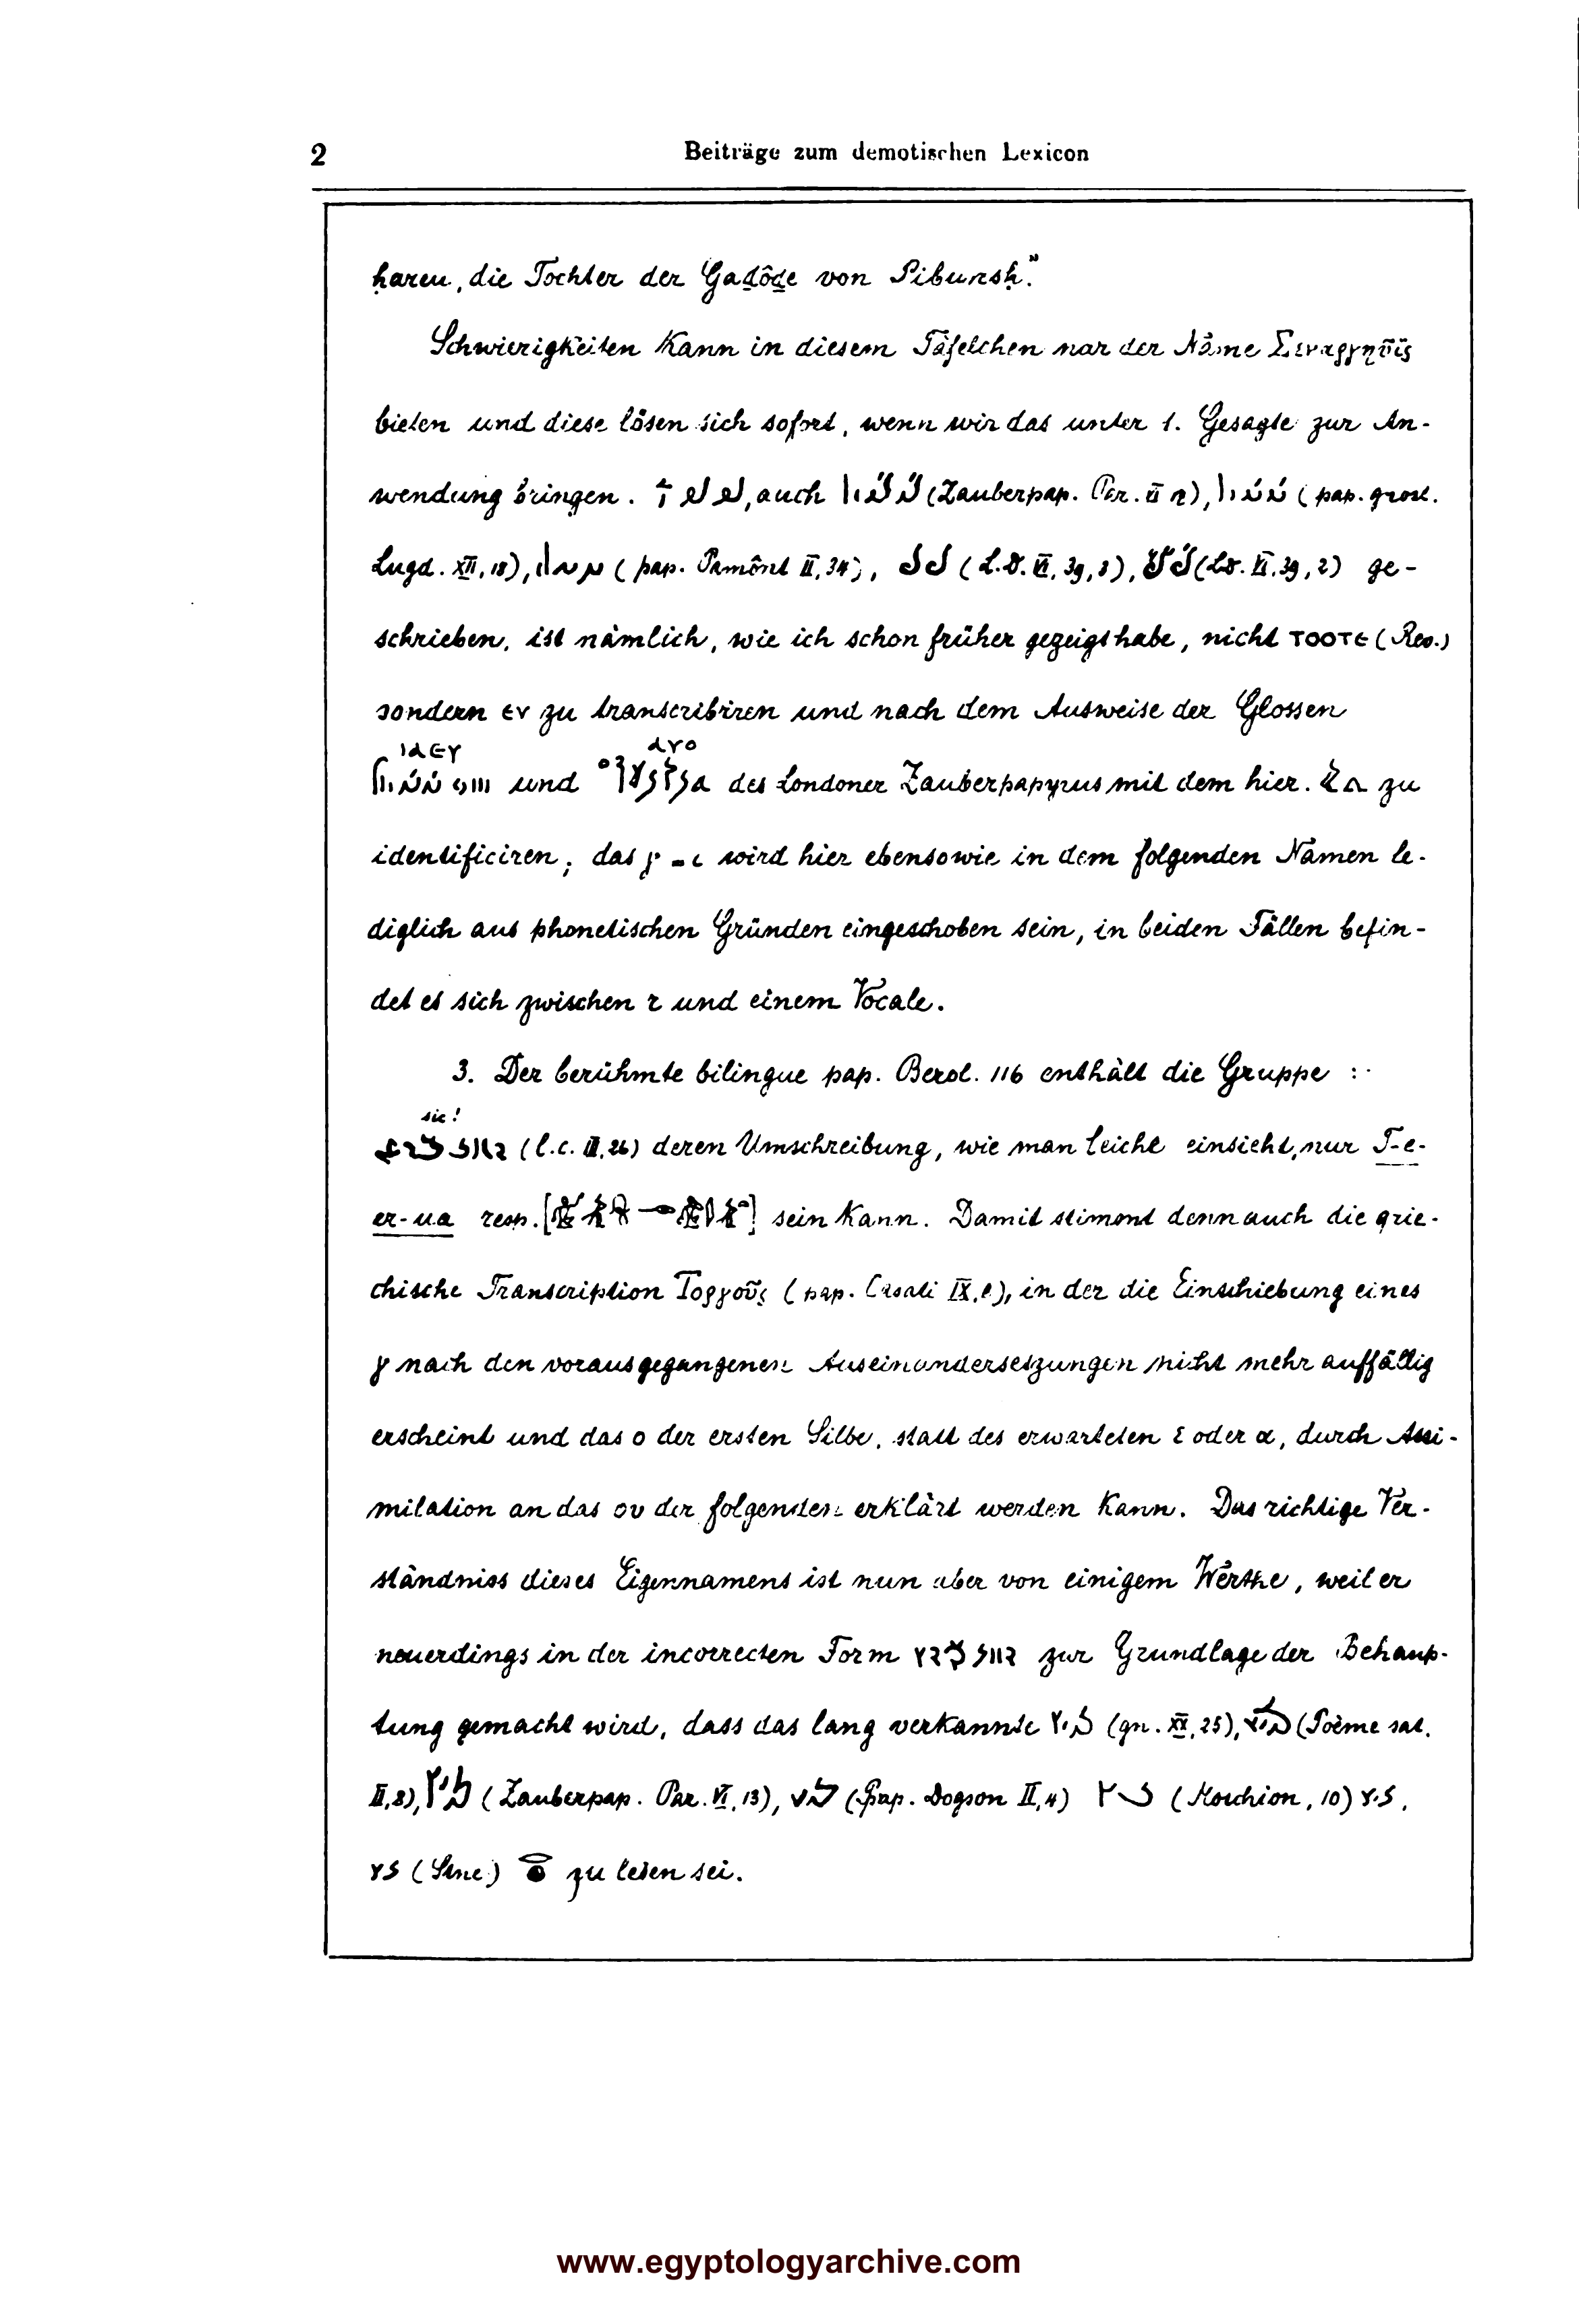 2
Beiträge zum demotischen Lexicon
ḥareu, die Tochter der Gad̲ôd̲e von Pibunsḥ."
Schwierigkeiten kann in diesem Täfelchen nur der Name Σεναργηῦϊς
bieten und diese lösen sich sofort, wenn wir das unter 1. Gesagte zur An-
wendung bringen. auch (Zauberpap. Par. II), (pap. gnost.
Lugd. XII, 18), (pap. Pamônt II, 34), (L.D. VI, 39, 3), (LD. VI. 39, 2) ge-
schrieben, ist nämlich, wie ich schon früher gezeigt habe, nicht ⲧⲟⲟⲧⲉ (Rev.)
sondern ⲉⲩ zu transcribiren und nach dem Ausweise der Glossen
ⲓⲁⲉⲩ ⲁⲩⲟ
und des Londoner Zauberpapyrus mit dem hier. zu
identificiren; das γ - ι wird hier ebensowie in dem folgenden Namen le-
diglich aus phonetischen Gründen eingeschoben sein, in beiden Fällen befin-
det es sich zwischen r und einem Vocale.
3. Der berühmte bilingue pap. Berol. 116 enthält die Gruppe :
sic!
(l.c. II, 26) deren Umschreibung, wie man leicht einsieht, nur T-e-
er-ua resp. [ ] sein kann. Damit stimmt denn auch die grie-
chische Transcription Τοργοῦς (pap. Casati IX, ), in der die Einschiebung eines
γ nach den vorausgegangenen Auseinandersetzungen nicht mehr auffällig
erscheint und das o der ersten Silbe, statt des erwarteten ε oder α, durch Assi-
milation an das ου der folgenden erklärt werden kann. Das richtige Ver-
ständniss dieses Eigennamens ist nun aber von einigem Werthe, weil er
neuerdings in der incorrecten Form zur Grundlage der Behaup-
tung gemacht wird, dass das lang verkannte (gn. XX, 25), (Poème sat.
II, 8), (Zauberpap. Par. VI, 13), (Pap. Dogson II, 4) (Moschion, 10)
(Stne) zu lesen sei.
www.egyptologyarchive.com